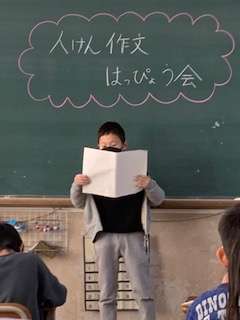 人けん作文
はっぴょう会
DINO